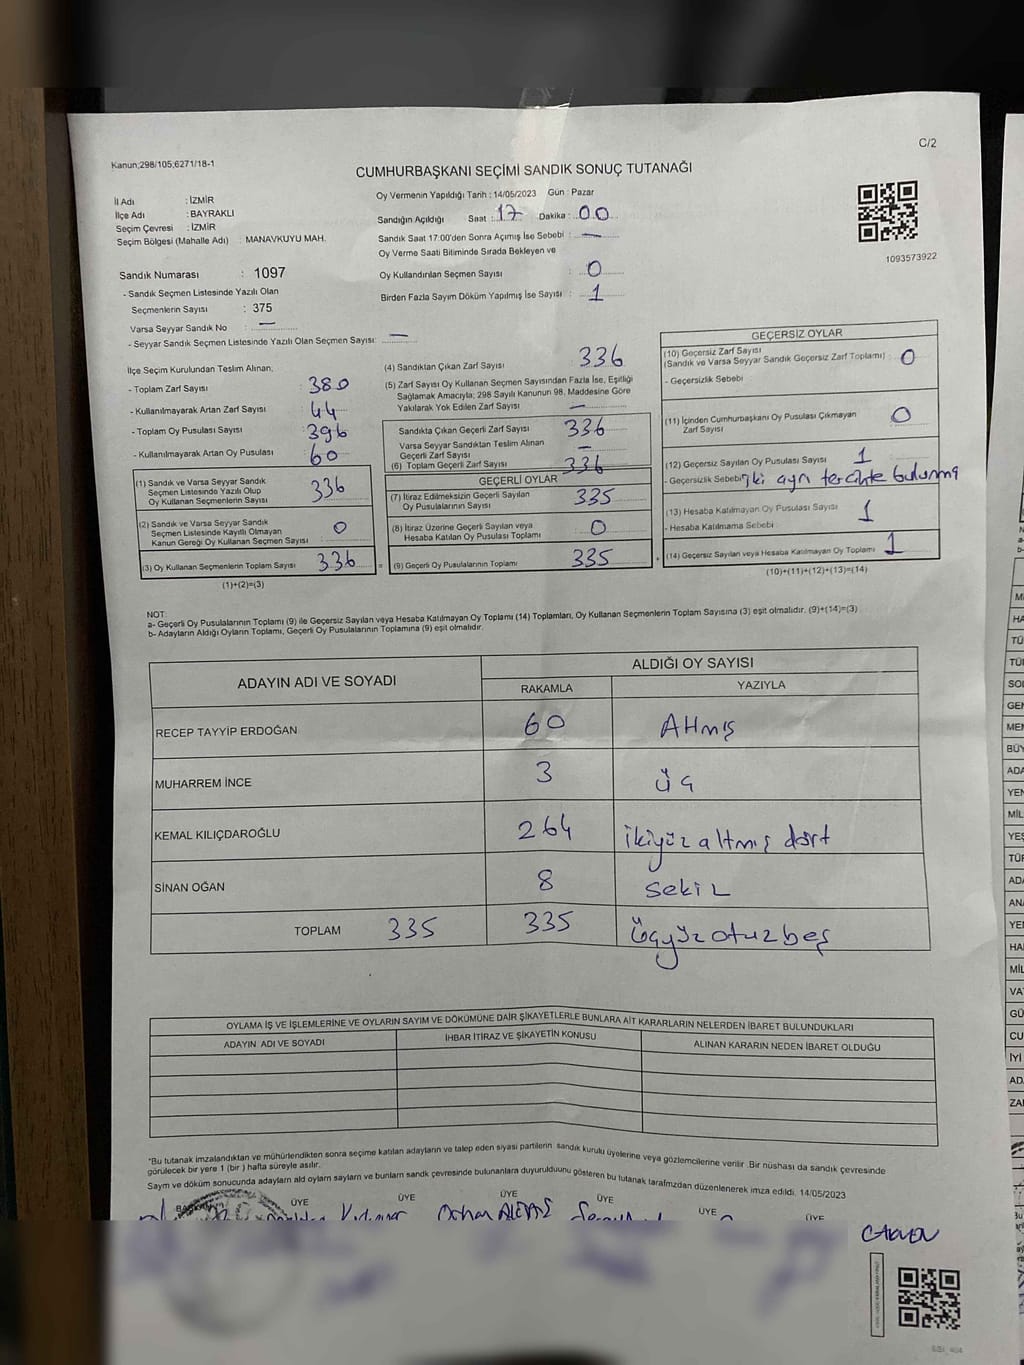 C/2
Kanun;298/105;6271/18-1
CUMHURBAŞKANI SEÇİMİ SANDIK SONUÇ TUTANAĞI
İl Adı : İZMİR
İlçe Adı : BAYRAKLI
Seçim Çevresi : İZMİR
Seçim Bölgesi (Mahalle Adı) : MANAVKUYU MAH.
Oy Vermenin Yapıldığı Tarih : 14/05/2023 Gün : Pazar
Sandığın Açıldığı Saat : 17 Dakika : 00
Sandık Saat 17:00'den Sonra Açılmış İse Sebebi : —
Oy Verme Saati Bitiminde Sırada Bekleyen ve
Oy Kullandırılan Seçmen Sayısı : 0
Birden Fazla Sayım Döküm Yapılmış İse Sayısı : 1
1093573922
Sandık Numarası : 1097
- Sandık Seçmen Listesinde Yazılı Olan
Seçmenlerin Sayısı : 375
Varsa Seyyar Sandık No : —
- Seyyar Sandık Seçmen Listesinde Yazılı Olan Seçmen Sayısı: —
İlçe Seçim Kurulundan Teslim Alınan,
- Toplam Zarf Sayısı : 380
- Kullanılmayarak Artan Zarf Sayısı : 44
- Toplam Oy Pusulası Sayısı : 396
- Kullanılmayarak Artan Oy Pusulası : 60
(1) Sandık ve Varsa Seyyar Sandık
Seçmen Listesinde Yazılı Olup
Oy Kullanan Seçmenlerin Sayısı : 336
(2) Sandık ve Varsa Seyyar Sandık
Seçmen Listesinde Kayıtlı Olmayan
Kanun Gereği Oy Kullanan Seçmen Sayısı : 0
(3) Oy Kullanan Seçmenlerin Toplam Sayısı : 336
(1)+(2)=(3)
(4) Sandıktan Çıkan Zarf Sayısı : 336
(5) Zarf Sayısı Oy Kullanan Seçmen Sayısından Fazla İse, Eşitliği
Sağlamak Amacıyla; 298 Sayılı Kanunun 98. Maddesine Göre
Yakılarak Yok Edilen Zarf Sayısı : —
Sandıkta Çıkan Geçerli Zarf Sayısı : 336
Varsa Seyyar Sandıktan Teslim Alınan
Geçerli Zarf Sayısı : —
(6) Toplam Geçerli Zarf Sayısı : 336
GEÇERLİ OYLAR
(7) İtiraz Edilmeksizin Geçerli Sayılan
Oy Pusulalarının Sayısı : 335
(8) İtiraz Üzerine Geçerli Sayılan veya
Hesaba Katılan Oy Pusulası Toplamı : 0
(9) Geçerli Oy Pusulalarının Toplamı : 335
GEÇERSİZ OYLAR
(10) Geçersiz Zarf Sayısı
(Sandık ve Varsa Seyyar Sandık Geçersiz Zarf Toplamı) : 0
- Geçersizlik Sebebi
(11) İçinden Cumhurbaşkanı Oy Pusulası Çıkmayan
Zarf Sayısı : 0
(12) Geçersiz Sayılan Oy Pusulası Sayısı : 1
- Geçersizlik Sebebi iki ayrı tercihte bulunma
(13) Hesaba Katılmayan Oy Pusulası Sayısı : 1
- Hesaba Katılmama Sebebi :
(14) Geçersiz Sayılan veya Hesaba Katılmayan Oy Toplamı : 1
(10)+(11)+(12)+(13)=(14)
NOT:
a- Geçerli Oy Pusulalarının Toplamı (9) ile Geçersiz Sayılan veya Hesaba Katılmayan Oy Toplamı (14) Toplamları, Oy Kullanan Seçmenlerin Toplam Sayısına (3) eşit olmalıdır. (9)+(14)=(3)
b- Adayların Aldığı Oyların Toplamı, Geçerli Oy Pusulalarının Toplamına (9) eşit olmalıdır.
ADAYIN ADI VE SOYADI ALDIĞI OY SAYISI
RAKAMLA YAZIYLA
RECEP TAYYİP ERDOĞAN 60 Altmış
MUHARREM İNCE 3 üç
KEMAL KILIÇDAROĞLU 264 ikiyüz altmış dört
SİNAN OĞAN 8 sekiz
TOPLAM 335 335 üçyüz otuz beş
OYLAMA İŞ VE İŞLEMLERİNE VE OYLARIN SAYIM VE DÖKÜMÜNE DAİR ŞİKAYETLERLE BUNLARA AİT KARARLARIN NELERDEN İBARET BULUNDUKLARI
ADAYIN ADI VE SOYADI İHBAR İTİRAZ VE ŞİKAYETİN KONUSU ALINAN KARARIN NEDEN İBARET OLDUĞU
*Bu tutanak imzalandıktan ve mühürlendikten sonra seçime katılan adayların ve talep eden siyasi partilerin sandık kurulu üyelerine veya gözlemcilerine verilir .Bir nüshası da sandık çevresinde
görülecek bir yere 1 (bir ) hafta süreyle asılır.
Sayım ve döküm sonucunda adayların ald oyların sayların ve bunların sandk çevresinde bulunanlara duyurulduunu gösteren bu tutanak tarafmzdan düzenlenerek imza edildi. 14/05/2023
BAŞKAN ÜYE ÜYE ÜYE ÜYE ÜYE ÜYE